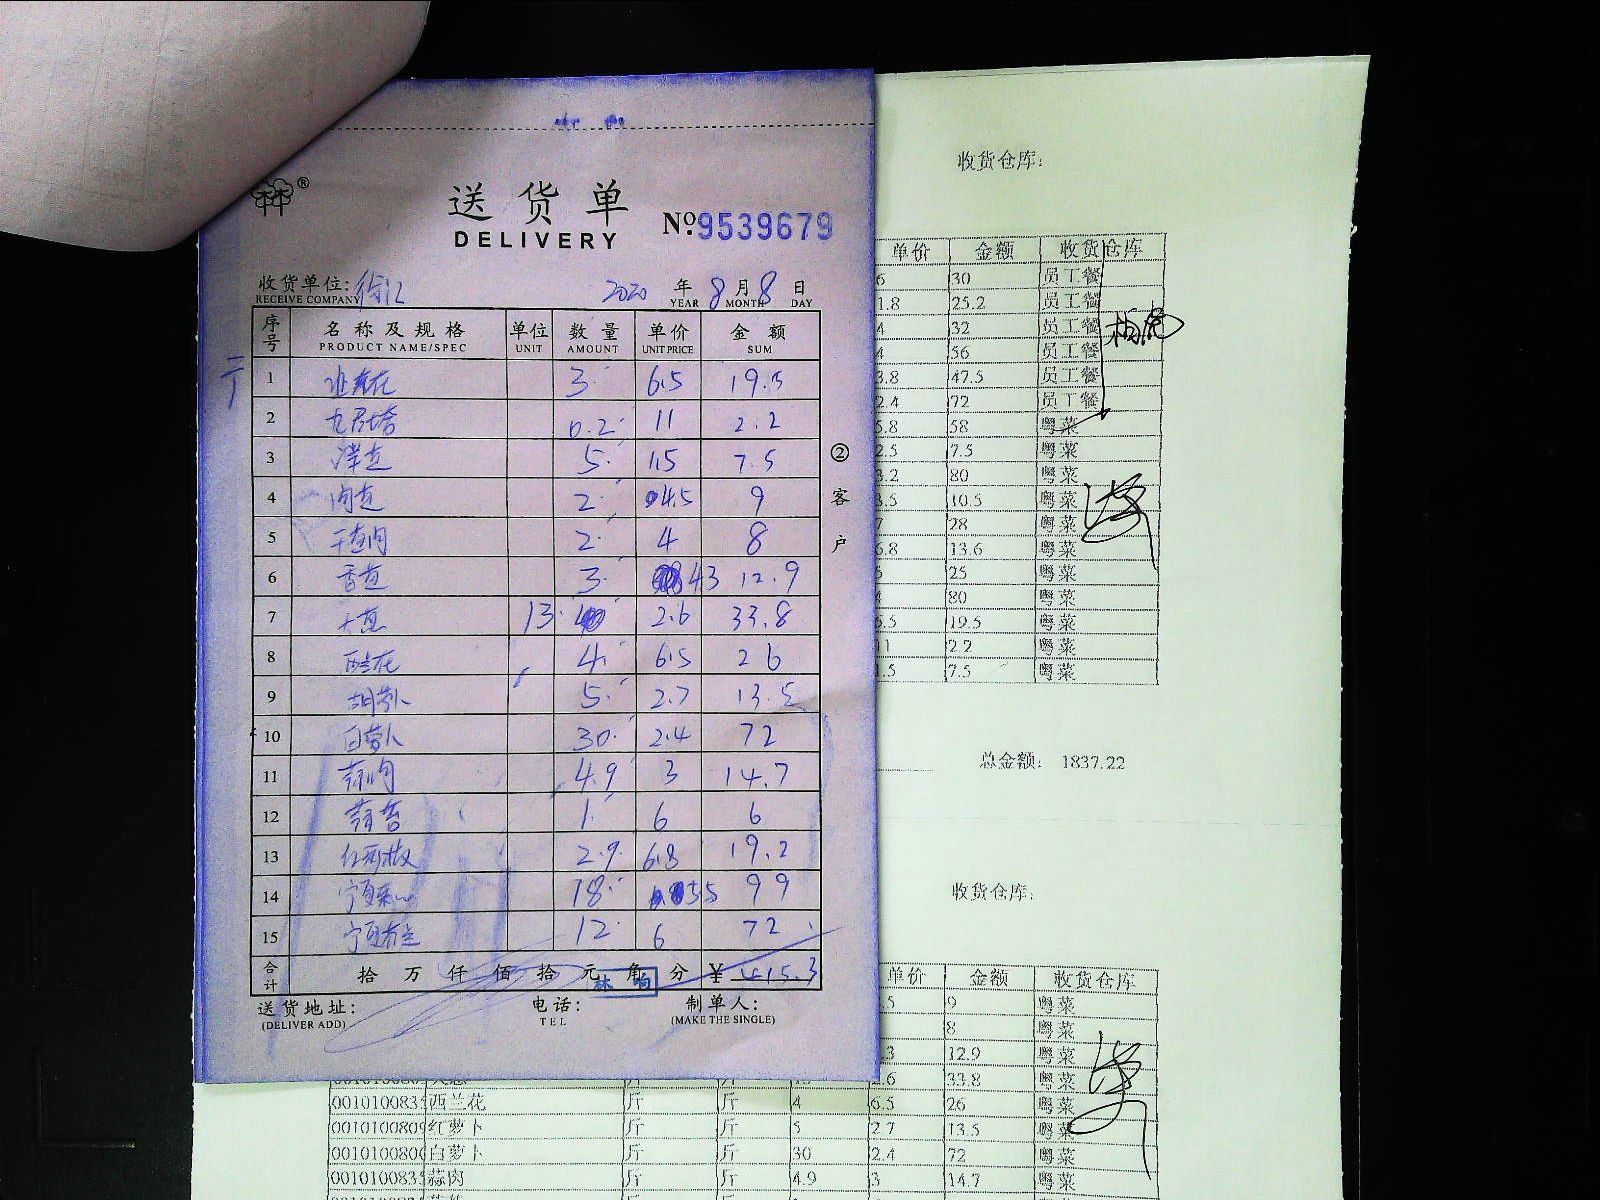 送货单
DELIVERY
№:9539679
收货单位:
RECEIVE COMPANY
2020 年 8 月 8 日
YEAR MONTH DAY
序号 名称及规格 单位 数量 单价 金额
PRODUCT NAME/SPEC UNIT AMOUNT UNIT PRICE SUM
1 3 6.5 19.5
2 九层塔 0.2 11 2.2
3 洋葱 5 1.5 7.5
4 肉葱 2 4.5 9
5 干葱肉 2 4 8
6 香葱 3 4.3 12.9
7 大葱 13 2.6 33.8
8 西兰花 4 6.5 26
9 胡萝卜 5 2.7 13.5
10 白萝卜 30 2.4 72
11 蒜肉 4.9 3 14.7
12 蒜苔 1 6 6
13 2.9 6.8 19.2
14 宁夏菜心 18 5.5 99
15 12 6 72
合计 拾 万 仟 佰 拾 元 角 分 ¥ 415.3
送货地址: 电话: 制单人:
(DELIVER ADD) TEL (MAKE THE SINGLE)
② 客户
收货仓库:
单价 金额 收货仓库
6 30 员工餐
1.8 25.2 员工餐
4 32 员工餐
4 56 员工餐
3.8 47.5 员工餐
2.4 72 员工餐
5.8 58 粤菜
2.5 7.5 粤菜
3.2 80 粤菜
3.5 10.5 粤菜
7 28 粤菜
6.8 13.6 粤菜
5 25 粤菜
80 粤菜
6.5 19.5 粤菜
11 2.2 粤菜
1.5 7.5 粤菜
总金额: 1837.22
收货仓库:
单价 金额 收货仓库
.5 9 粤菜
8 粤菜
.3 12.9 粤菜
2.6 33.8 粤菜
001010083 西兰花 斤 斤 4 6.5 26 粤菜
0010100809 红萝卜 斤 斤 5 2.7 13.5 粤菜
0010100800 白萝卜 斤 斤 30 2.4 72 粤菜
001010083 蒜肉 斤 斤 4.9 3 14.7 粤菜